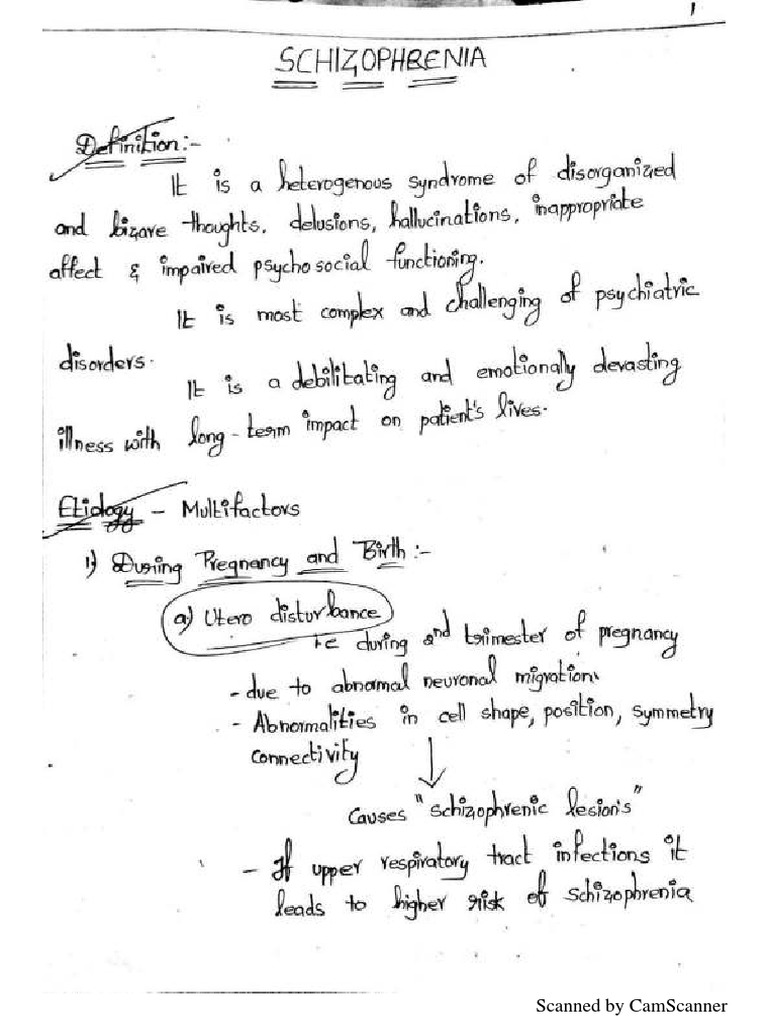 1
SCHIZOPHRENIA
Definition:-
It is a heterogenous syndrome of disorganized
and bizave thoughts, delusions, hallucinations, inappropriate
affect & impaired psychosocial functioning.
It is most complex and challenging of psychiatric
disorders.
It is a debilitating and emotionally devasting
illness with long-term impact on patient's lives.
Etiology - Multifactors
1) During Pregnancy and Birth:-
a) Utero disturbance
i.e during 2nd trimester of pregnancy
- due to abnormal neuronal migration.
- Abnormalities in cell shape, position, symmetry
connectivity
↓
causes "schizophrenic lesion's"
- If upper respiratory tract infections it
leads to higher risk of schizophrenia
Scanned by CamScanner